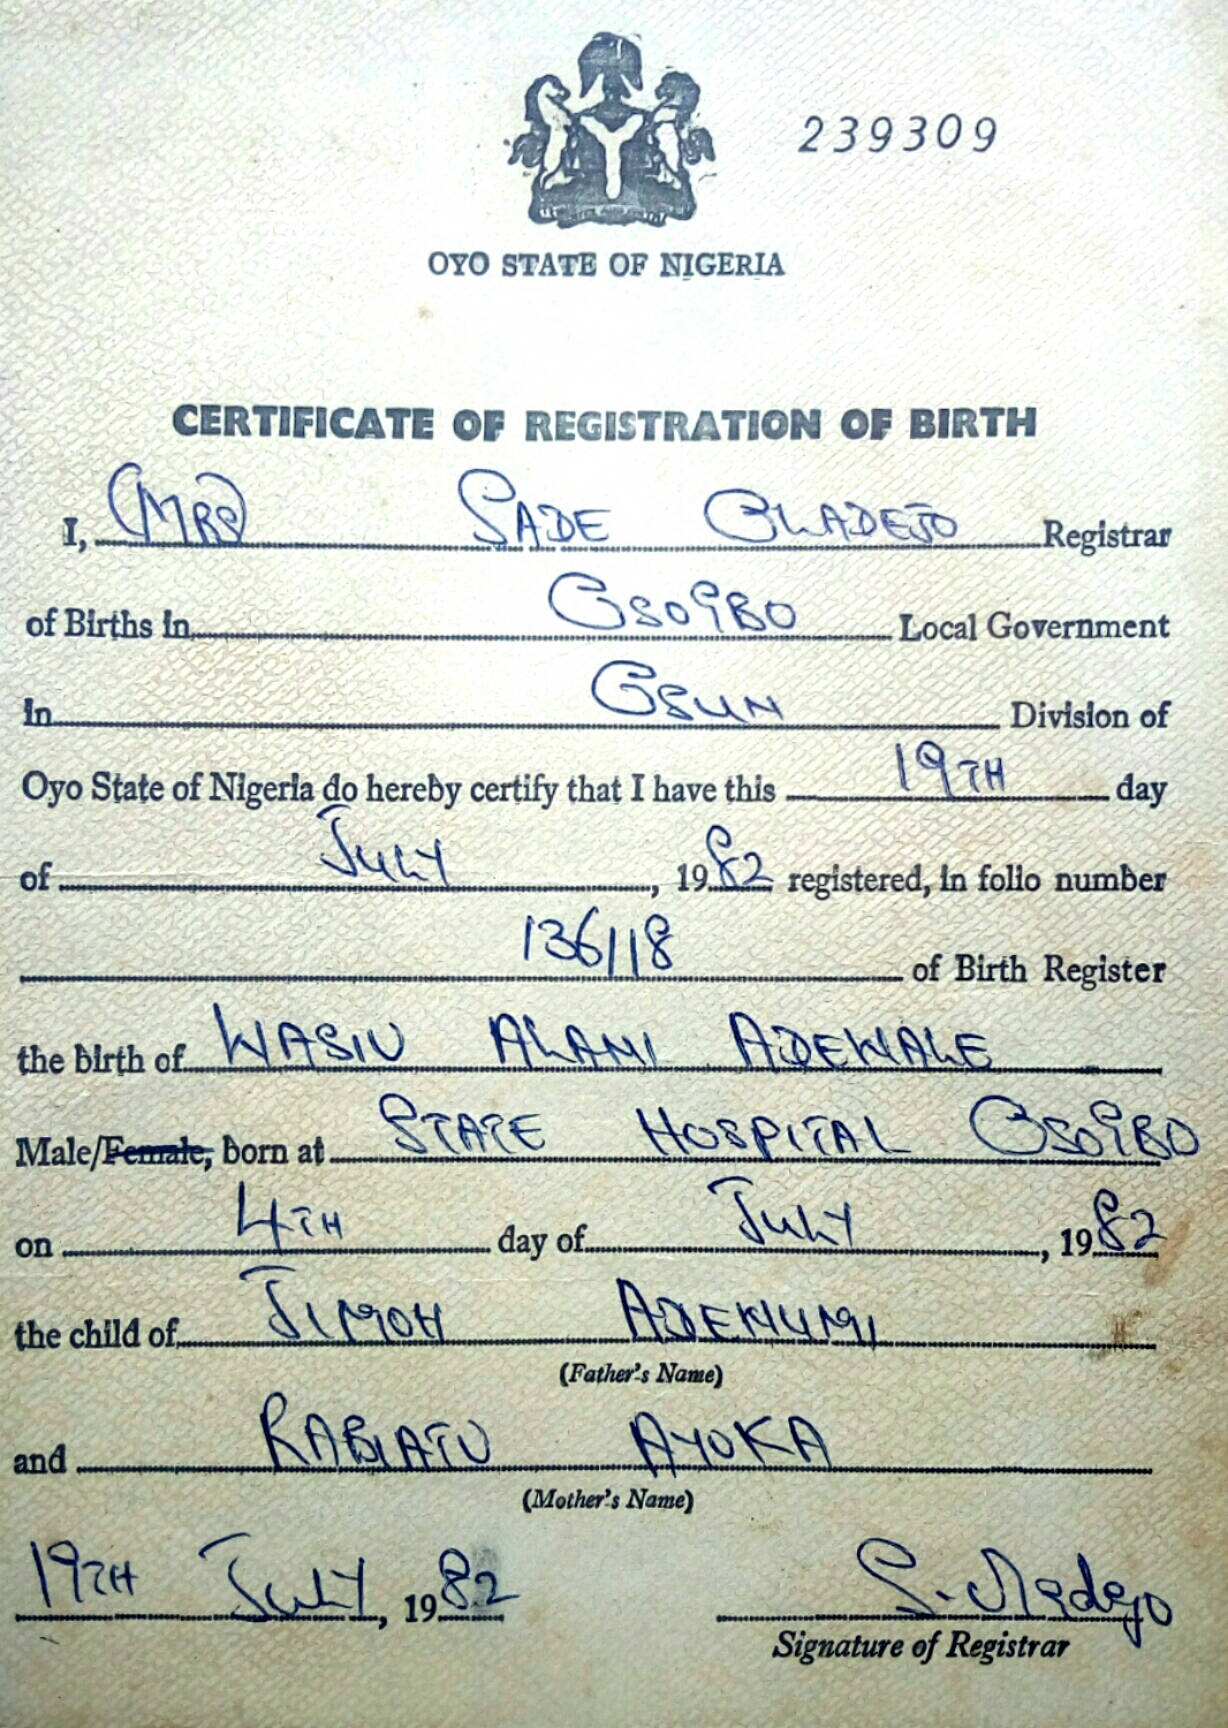 239309
OYO STATE OF NIGERIA
CERTIFICATE OF REGISTRATION OF BIRTH
I, (MRS) SADE OLADEJO Registrar
of Births in OSOGBO Local Government
in OSUN Division of
Oyo State of Nigeria do hereby certify that I have this 19TH day
of JULY, 1982 registered, in folio number
136/18 of Birth Register
the birth of WASIU ALANI ADEWALE
Male/Female, born at STATE HOSPITAL OSOGBO
on 4TH day of JULY, 1982
the child of JIMOH ADEKUNMI
(Father's Name)
and RABIATU AYOKA
(Mother's Name)
19TH JULY, 1982 S. Oladejo
Signature of Registrar